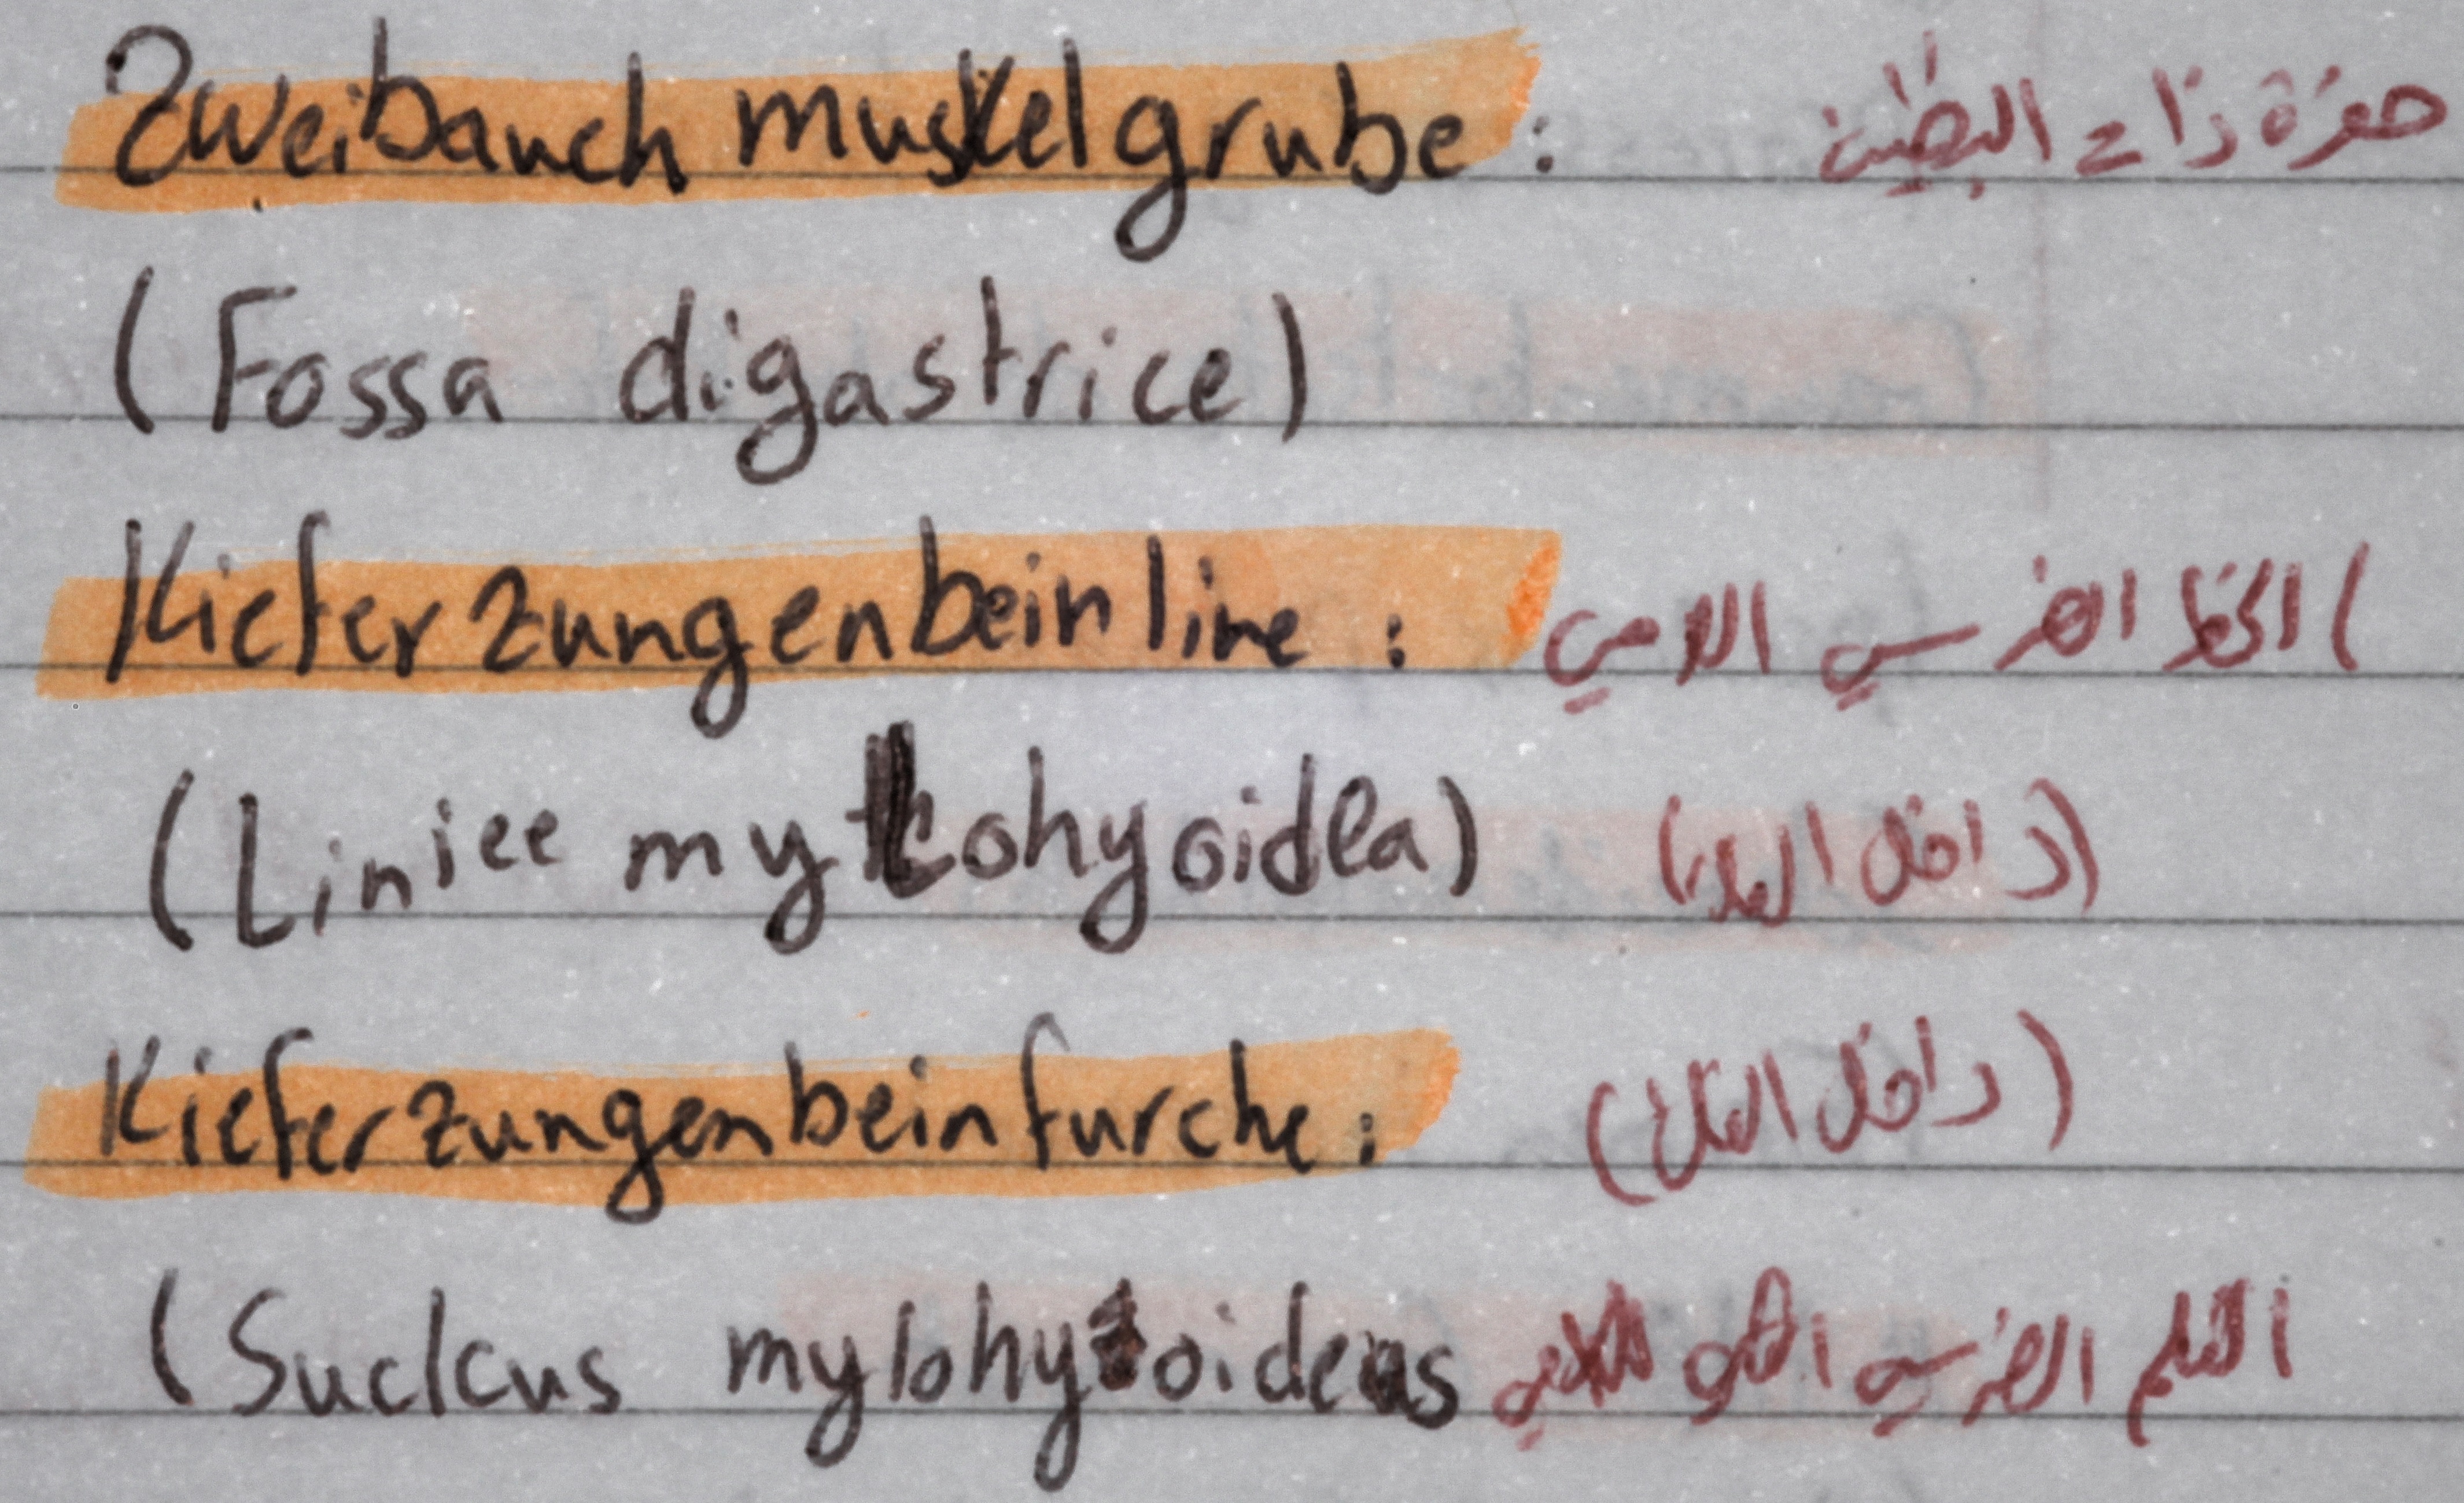 Zweibauch muskelgrube : حفرة ذات البطين
(Fossa digastrice)
Kiefer zungenbein line : الخط الضرسي اللامي
(Liniee mylohyoidea) (داخل
Kieferzungenbeinfurche : (داخل الفك)
(Suclcus mylohyoideus التلم الضرسي اللامي